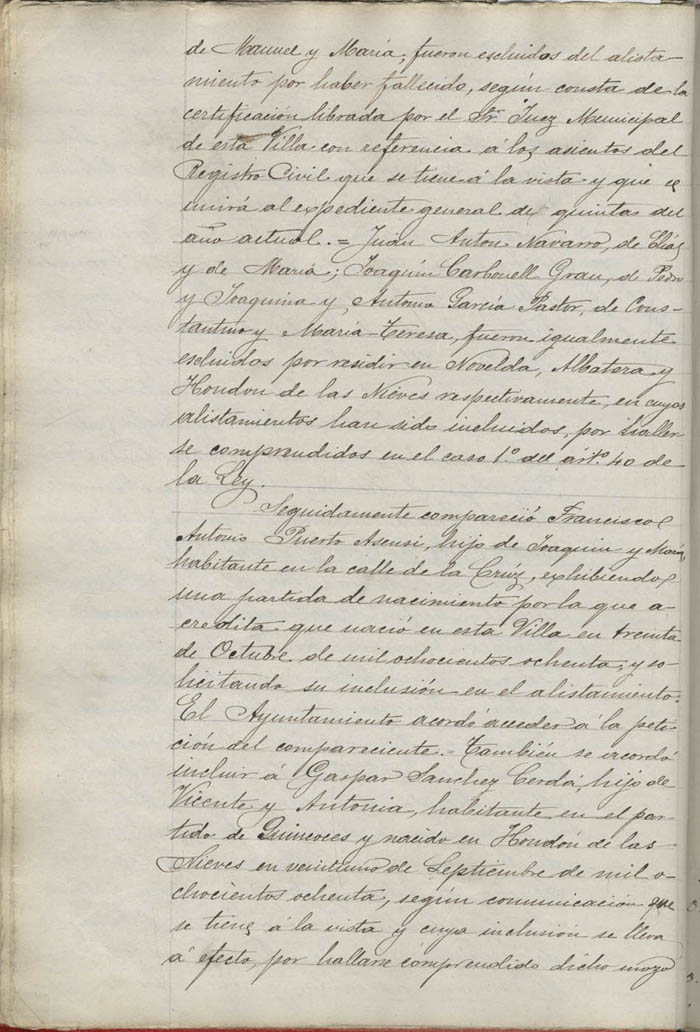 de Manuel y María, fueron escluidos del alista-
miento por haber fallecido, según consta de la
certificación librada por el Sr. Juez Municipal
de esta Villa con referencia á los asientos del
Registro Civil que se tiene á la vista y que se
unirá al expediente general de quintas del
año actual.= Juan Anton Navarro, de Elías
y de María; Joaquín Carbonell Grau, de Pedro
y Joaquina y Antonio García Pastor, de Cons-
tantino y María-Teresa, fueron igualmente
escluidos por residir en Novelda, Albatera y
Hondon de las Nieves respectivamente, en cuyos
alistamientos han sido incluidos, por hallar-
se comprendidos en el caso 1º del artº 40 de
la Ley.
Seguidamente compareció Francisco
Antonio Puerto Asensi, hijo de Joaquin y María,
habitante en la calle de la Crúz, exhibiendo
una partida de nacimiento por la que a-
credita que nació en esta Villa en treinta
de Octubre de mil ochocientos ochenta, y so-
licitando su inclusión en el alistamiento.
El Ayuntamiento acordó acceder á la peti-
ción del compareciente.= También se acordó
incluir á Gaspar Sanchez Cerdá, hijo de
Vicente y Antonia, habitante en el par-
tido de Quincoces y nacido en Hondón de las
Nieves en veintiuno de Septiembre de mil o-
chocientos ochenta, según comunicación que
se tiene á la vista y cuya inclusión se lleva
á efecto, por hallarse comprendido dicho mozo